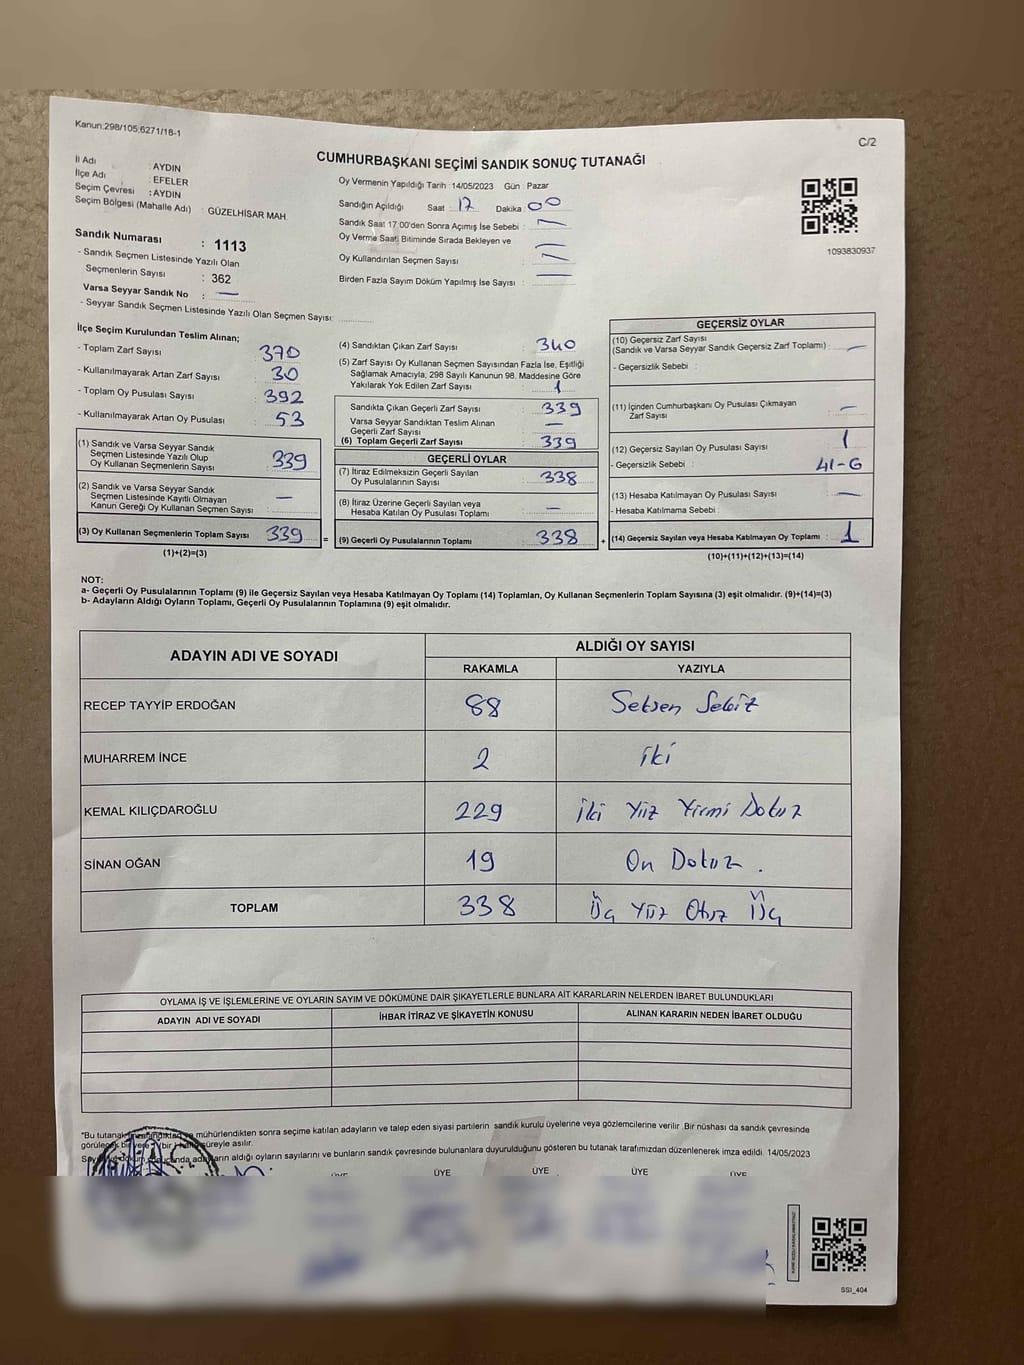 Kanun:298/105;6271/18-1
C/2
CUMHURBAŞKANI SEÇİMİ SANDIK SONUÇ TUTANAĞI
İl Adı : AYDIN
İlçe Adı : EFELER
Seçim Çevresi : AYDIN
Seçim Bölgesi (Mahalle Adı) : GÜZELHİSAR MAH
Oy Vermenin Yapıldığı Tarih : 14/05/2023 Gün : Pazar
Sandığın Açıldığı Saat : 17 Dakika : 00
Sandık Saat 17:00'den Sonra Açımış İse Sebebi : —
Oy Verme Saati Bitiminde Sırada Bekleyen ve —
Oy Kullandırılan Seçmen Sayısı : —
Birden Fazla Sayım Döküm Yapılmış İse Sayısı : —
1093830937
Sandık Numarası : 1113
- Sandık Seçmen Listesinde Yazılı Olan
Seçmenlerin Sayısı : 362
Varsa Seyyar Sandık No : —
- Seyyar Sandık Seçmen Listesinde Yazılı Olan Seçmen Sayısı:
İlçe Seçim Kurulundan Teslim Alınan;
- Toplam Zarf Sayısı : 370
- Kullanılmayarak Artan Zarf Sayısı : 30
- Toplam Oy Pusulası Sayısı : 392
- Kullanılmayarak Artan Oy Pusulası : 53
(1) Sandık ve Varsa Seyyar Sandık
Seçmen Listesinde Yazılı Olup
Oy Kullanan Seçmenlerin Sayısı : 339
(2) Sandık ve Varsa Seyyar Sandık
Seçmen Listesinde Kayıtlı Olmayan
Kanun Gereği Oy Kullanan Seçmen Sayısı : —
(3) Oy Kullanan Seçmenlerin Toplam Sayısı : 339 =
(1)+(2)=(3)
(4) Sandıktan Çıkan Zarf Sayısı : 340
(5) Zarf Sayısı Oy Kullanan Seçmen Sayısından Fazla İse, Eşitliği
Sağlamak Amacıyla, 298 Sayılı Kanunun 98. Maddesine Göre
Yakılarak Yok Edilen Zarf Sayısı : 1
Sandıkta Çıkan Geçerli Zarf Sayısı : 339
Varsa Seyyar Sandıktan Teslim Alınan
Geçerli Zarf Sayısı : —
(6) Toplam Geçerli Zarf Sayısı : 339
GEÇERLİ OYLAR
(7) İtiraz Edilmeksizin Geçerli Sayılan
Oy Pusulalarının Sayısı : 338
(8) İtiraz Üzerine Geçerli Sayılan veya
Hesaba Katılan Oy Pusulası Toplamı : —
(9) Geçerli Oy Pusulalarının Toplamı : 338 +
GEÇERSİZ OYLAR
(10) Geçersiz Zarf Sayısı
(Sandık ve Varsa Seyyar Sandık Geçersiz Zarf Toplamı) : —
- Geçersizlik Sebebi :
(11) İçinden Cumhurbaşkanı Oy Pusulası Çıkmayan
Zarf Sayısı : —
(12) Geçersiz Sayılan Oy Pusulası Sayısı : 1
- Geçersizlik Sebebi : 41-G
(13) Hesaba Katılmayan Oy Pusulası Sayısı : —
- Hesaba Katılmama Sebebi :
(14) Geçersiz Sayılan veya Hesaba Katılmayan Oy Toplamı : 1
(10)+(11)+(12)+(13)=(14)
NOT:
a- Geçerli Oy Pusulalarının Toplamı (9) ile Geçersiz Sayılan veya Hesaba Katılmayan Oy Toplamı (14) Toplamları, Oy Kullanan Seçmenlerin Toplam Sayısına (3) eşit olmalıdır. (9)+(14)=(3)
b- Adayların Aldığı Oyların Toplamı, Geçerli Oy Pusulalarının Toplamına (9) eşit olmalıdır.
ADAYIN ADI VE SOYADI ALDIĞI OY SAYISI
RAKAMLA YAZIYLA
RECEP TAYYİP ERDOĞAN 88 Seksen Sekiz
MUHARREM İNCE 2 iki
KEMAL KILIÇDAROĞLU 229 iki Yüz Yirmi Dokuz
SİNAN OĞAN 19 On Dokuz .
TOPLAM 338 Üç Yüz Otuz Üç
OYLAMA İŞ VE İŞLEMLERİNE VE OYLARIN SAYIM VE DÖKÜMÜNE DAİR ŞİKAYETLERLE BUNLARA AİT KARARLARIN NELERDEN İBARET BULUNDUKLARI
ADAYIN ADI VE SOYADI İHBAR İTİRAZ VE ŞİKAYETİN KONUSU ALINAN KARARIN NEDEN İBARET OLDUĞU
"Bu tutanak mühürlendikten sonra seçime katılan adayların ve talep eden siyasi partilerin sandık kurulu üyelerine veya gözlemcilerine verilir .Bir nüshası da sandık çevresinde
süreyle asılır.
aldığı oyların sayılarını ve bunların sandık çevresinde bulunanlara duyurulduğunu gösteren bu tutanak tarafımızdan düzenlenerek imza edildi. 14/05/2023
ÜYE ÜYE ÜYE ÜYE ÜYE
SSI_404